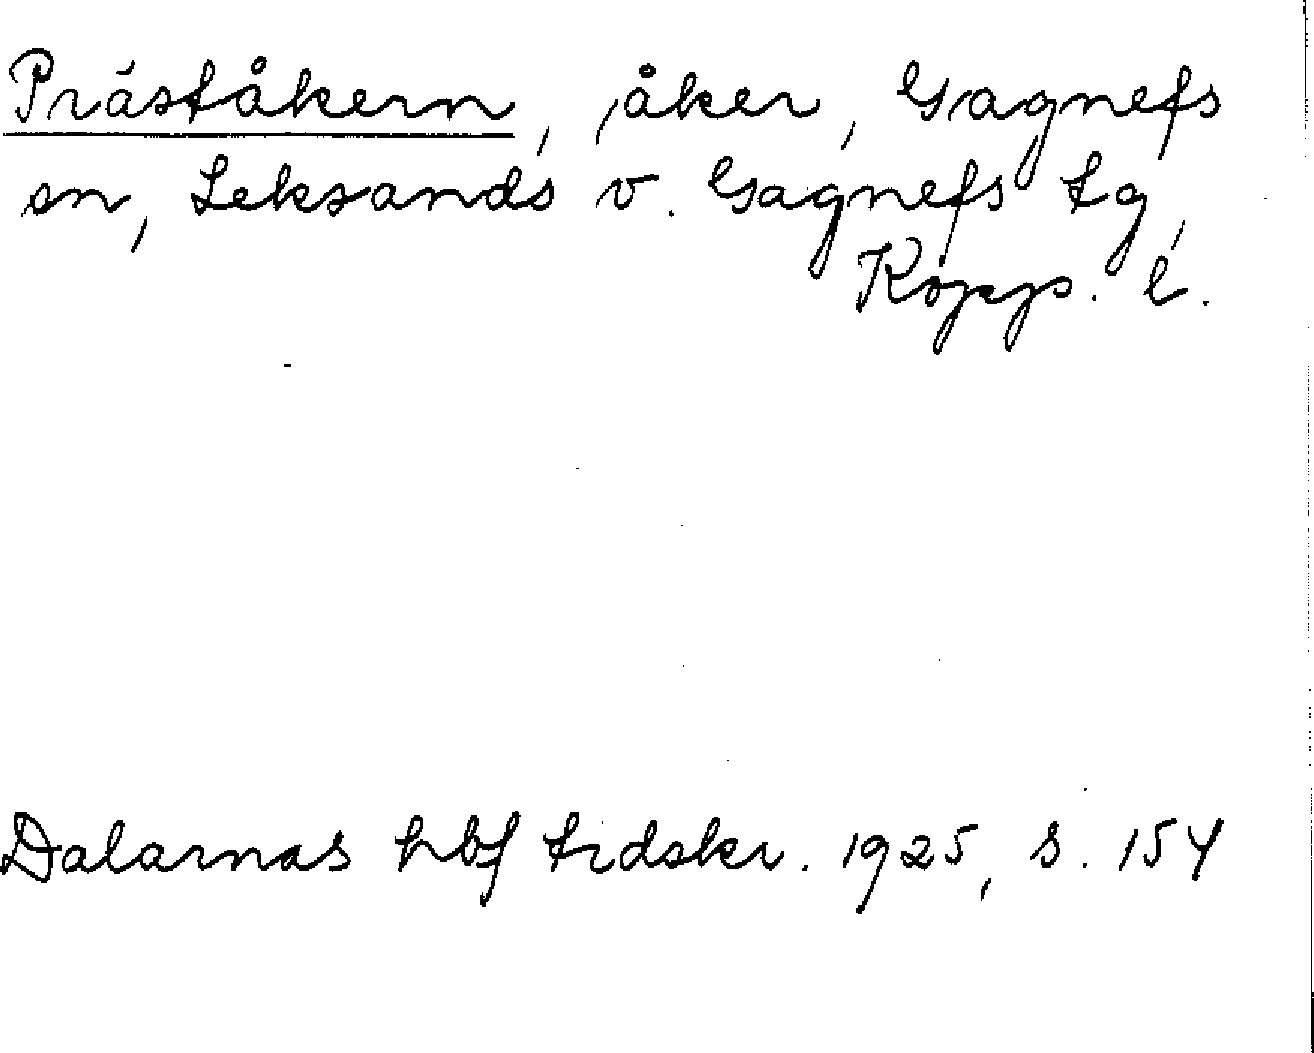 Pråståkern, åker, Gagnefs
sn, Leksands v. Gagnefs tg,
Kopp. l.
Dalarnas hbf tidskr. 1925, s. 154